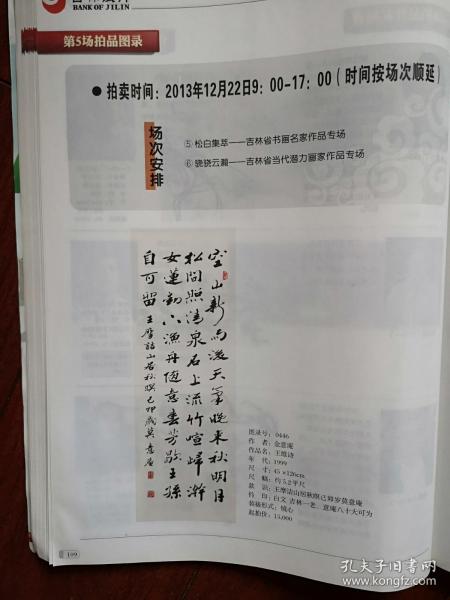 BANK OF JILIN
第5场拍品图录
● 拍卖时间：2013年12月22日9：00-17：00（时间按场次顺延）
场次安排
⑤ 松白集萃——吉林省书画名家作品专场
⑥ 骁骁云瀚——吉林省当代潜力画家作品专场
空山新雨后天气晚来秋明月
松间照清泉石上流竹喧归浣
女莲动下渔舟随意春芳歇王孙
自可留 王摩诘山居秋暝己卯岁莫意庵
图录号：0446
作 者：金意庵
名 称：王维诗
年 代：1999
尺 寸：45×126cm
尺 幅：约5.2平尺
款 识：王摩诘山居秋暝己卯岁莫意庵
钤 印：白文 吉林一老、意庵八十大可为
装裱形式：镜心
起拍价：15,000
109
孔夫子旧书网
www.kongfz.com